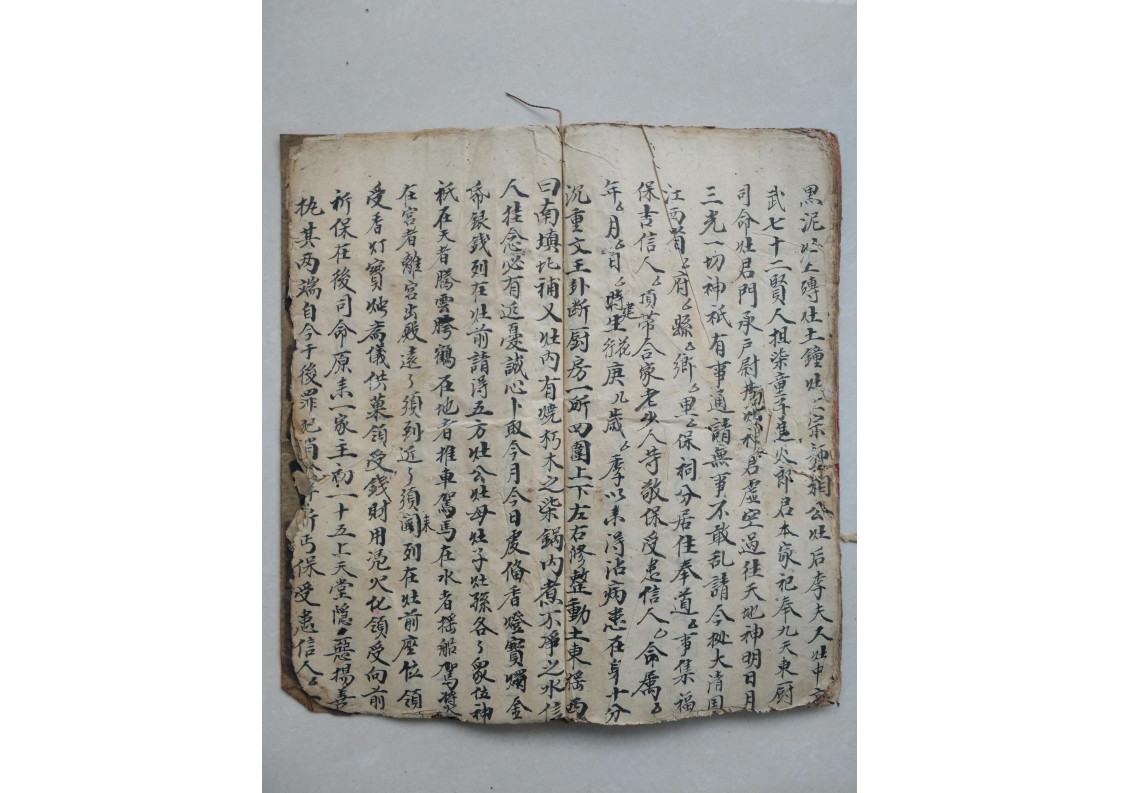 黑泥灶土磚灶土鐘灶宗神祖公灶后李夫人灶中
武七十二賢人担柴童子進火郎君本家祀奉九天東厨
司命灶君門承戶尉神君虚空過往天地神明日月
三光一切神祇有事通請無事不敢乱請今挑大清国
江西省〻府〻縣〻鄉〻里〻保祠分居住奉道〻事集福
保吉信人〻項带合家老少人等敬保受患信人〻命属〻
年〻月〻日〻時生建行庚几歲〻季以来得沾病患在身十分
沉重文王卦断厨房一所四圍上下左右修整動土東摇西
曰南填北補又灶内有燒朽木之柴鍋内煮不净之水信
人挂念必有近憂誠心卜取今月今日虔俻香燈寶燭金
帛銀錢列在灶前請得五方灶公灶母灶子灶孫各〻衆位神
祇在天者騰雲跨鶴在地者推車駕馬在水者摇船駕槳
在宫者離宫出殿遠〻須到近〻須闻来列在灶前座位領
受香灯寶烛斋儀供菓領受錢財用凭火化領受向前
祈保在後司命原来一家主初一十五上天堂隱〻惡揚善
执其两端自今于後罪犯消 祈丐保受患信人〻